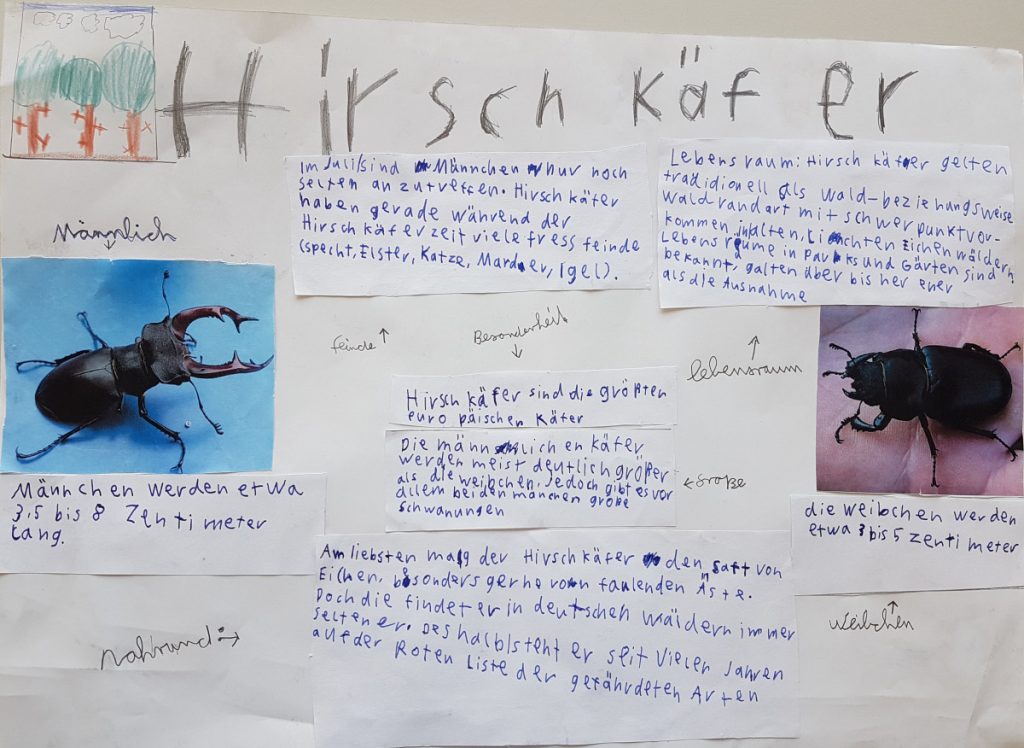 Hirschkäfer
Im Juli sind Männchen nur noch
selten anzutreffen. Hirschkäfer
haben gerade während der
Hirschkäferzeit viele fressfeinde
(specht, Elster, Katze, Marder, Igel).
Lebensraum: Hirschkäfer gelten
tradidionell als wald-beziehungsweise
waldrandart mit schwerpunktvor-
kommen in alten, lichten Eichenwäldern.
Lebensräume in Parks und Gärten sind
bekannt, galten aber bis her eher
als die Ausnahme
Männlich
feinde ↑
Besonderheit
↓
lebensraum ↑
Hirschkäfer sind die größten
europäischen Käfer
Die männlichen Käfer
werden meist deutlich größer
als die weibchen. Jedoch gibt es vor
allem bei den mänchen große
schwanungen
← Größe
Männchen werden etwa
3,5 bis 8 Zentimeter
lang.
die Weibchen werden
etwa 3 bis 5 zentimeter
weibchen ↑
Nahrund: →
Am liebsten mag der Hirschkäfer den saft von
Eichen, besonders gerne von faulenden Äste.
Doch die findet er in deutschen Wäldern immer
seltener. Deshalb steht er seit vielen Jahren
auf der Roten Liste der gefährdeten Arten